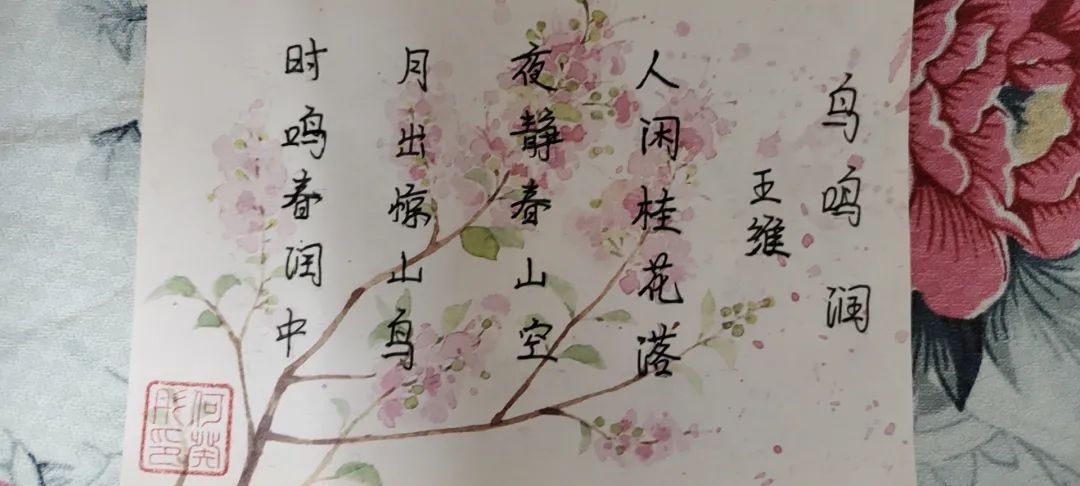 鸟鸣润
王维
人闲桂花落
夜静春山空
月出惊山鸟
时鸣春润中